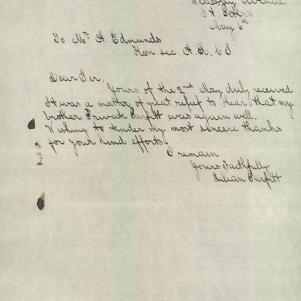 Wellesley Avenue
St Peters
May 6th
To Mr A Edmunds
Hon sec A R C S
Dear Sir,
Yours of the 2nd May duly received
It was a matter of great relief to hear that my
brother Private Parfitt was again well.
Wishing to tender my most sincere thanks
for your kind efforts!
I remain
Yours Faithfully
Lilian Parfitt